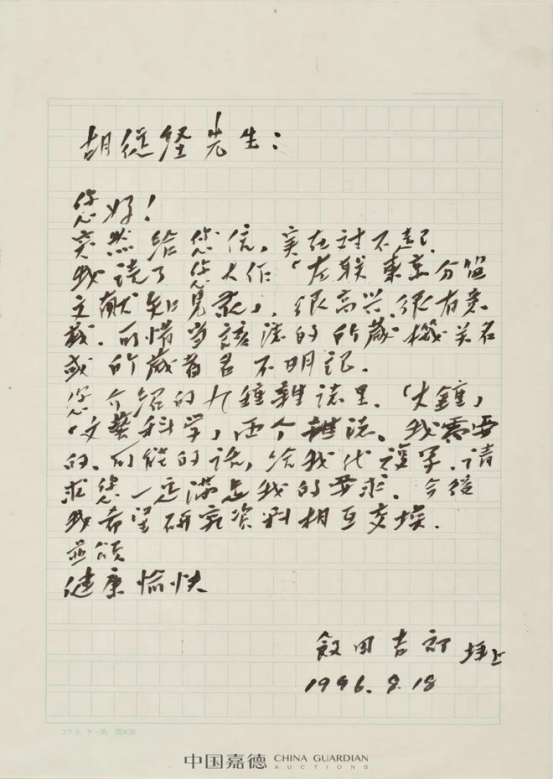 胡从经先生:
您好!
突然给您信,实在讨不起.
我读了您大作「左联東京分盟
文献知見录」,很高兴.很有意
栽.可惜当該誌的所蔵機关名
或所蔵者名不明記.
您介绍的九種雜誌里.「大鐘」
「文藝科学」两个雜誌.我需要
的.可能的话,给我代複写.请
求您一定满足我的要求.今後
我希望研究資料相互交换.
並颂
健康愉快
飯田吉郎 拝上
1996.8.18
コクヨ ケ-
中国嘉德 CHINA GUARDIAN
AUCTIONS